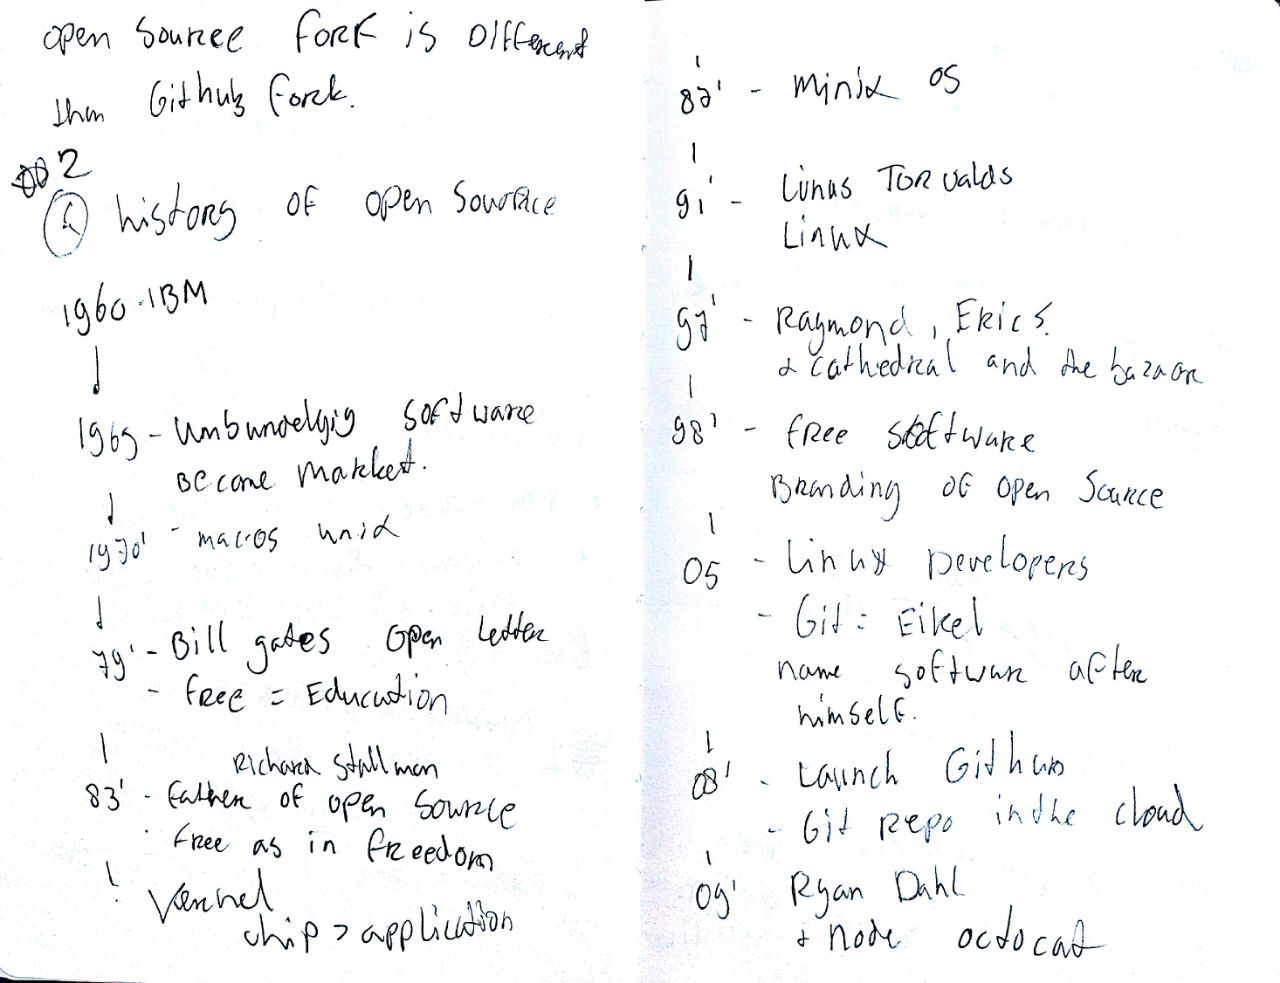 open source fork is different
than Github fork.
2
history of open source
1960 . IBM
1969 - Umbundelgig software
Become market.
1970' - macros unix
79' - Bill gates open letter
- free = Education
Richard Stallman
83' - father of open source
free as in freedom
Kernel
chip > application
87' - minix OS
91' - Linus Torvalds
Linux
97' - Raymond, Eric S.
+ cathedral and the bazaar
98' - free software
Branding of open source
05 - Linux Developers
- Git = Eikel
name software after
himself.
08' - Launch Github
- Git repo in the cloud
09' Ryan Dahl
+ node octocat